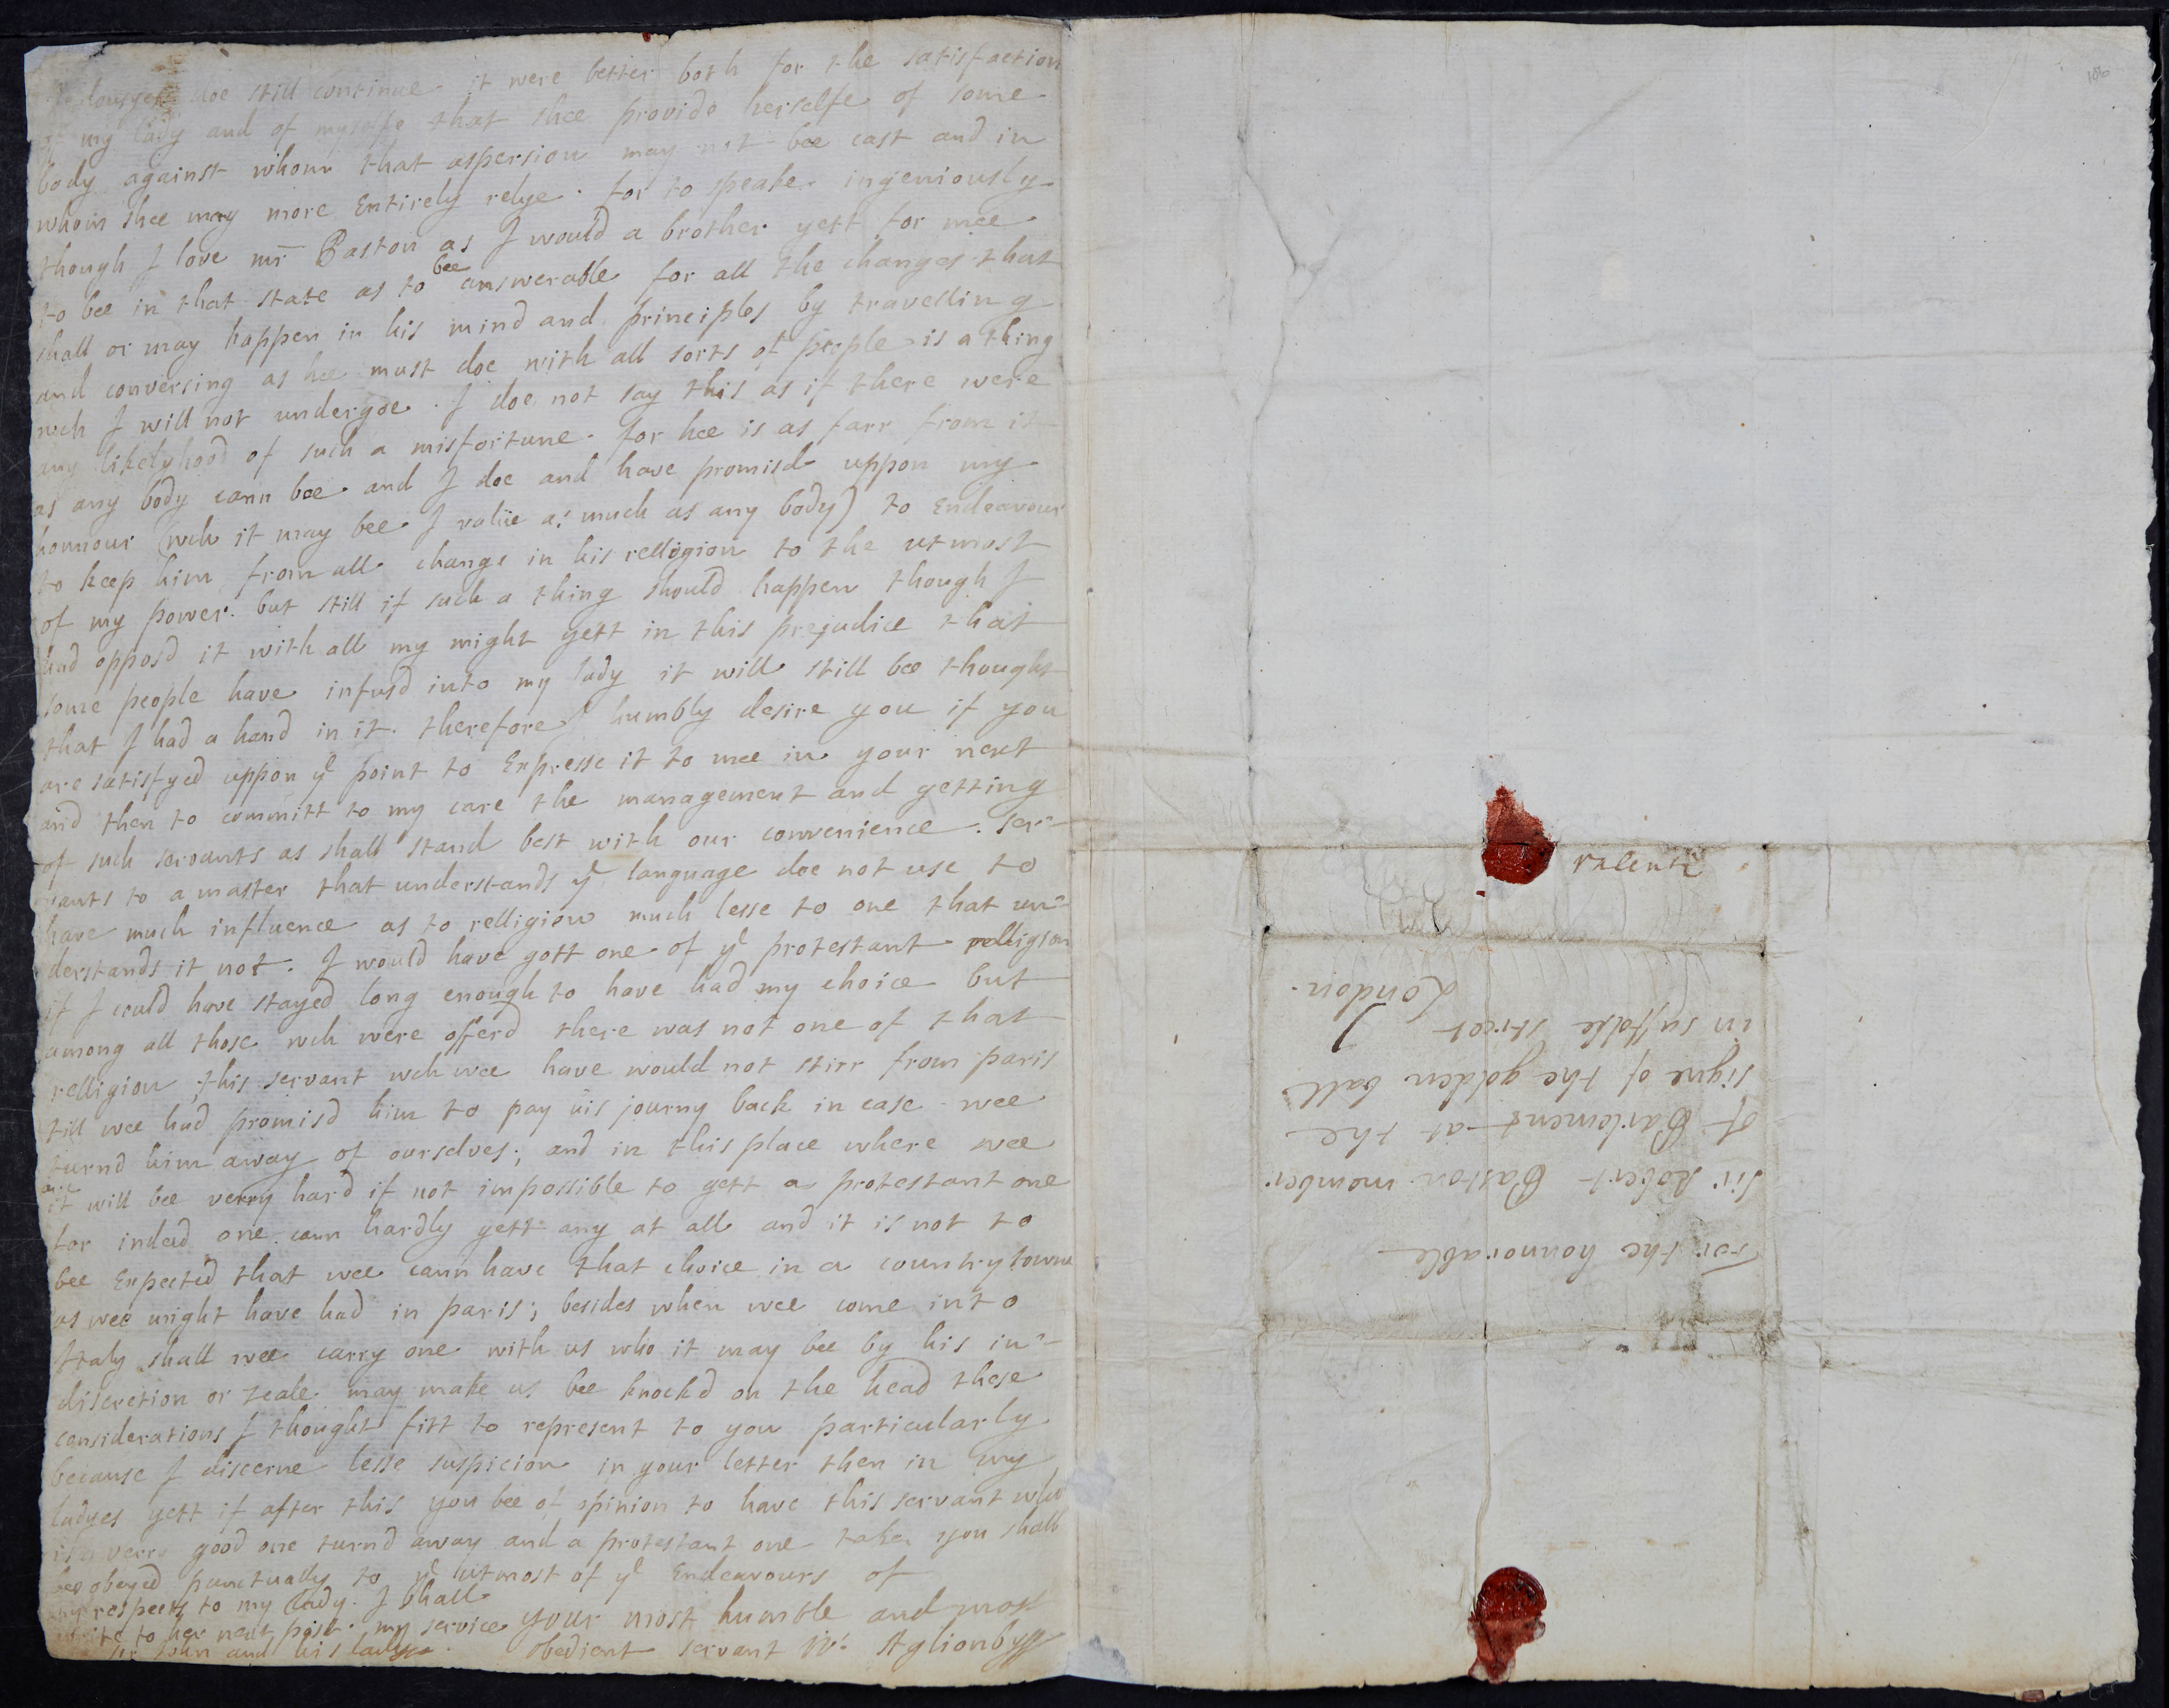 doe still continue it were better both for the satisfaction
of my lady and of myselfe that shee provide herselfe of some
body against whom that aspersion may not bee cast and in
whom shee may more Entirely relye. for to speake ingeniously
though I love mr Paston as I would a brother yett for mee
to bee in that state as to bee answerable for all the changes that
shall or may happen in his mind and principles by travelling
and conversing as hee must doe with all sorts of people is a thing
wch I will not undergoe. I doe not say this as if there were
any likelyhood of such a misfortune. for hee is as farr from it
as any body cann bee and I doe and have promisd uppon my
honnour (wch it may bee I valüe as much as any body) to Endeavour
to keep him from all change in his relligion to the utmost
of my power. but still if such a thing should happen though I
had opposd it with all my might yett in this prejudice that
some people have infusd into my lady it will still bee thought
that I had a hand in it. therefore I humbly desire you if you
are satisfyed uppon ye point to Expresse it to mee in your next
and then to committ to my care the management and getting
of such servants as shall stand best with our convenience. ser-
vants to a master that understands ye language doe not use to
have much influence as to relligion much lesse to one that un-
derstands it not. I would have gott one of ye protestant relligion
if I could have stayed long enough to have had my choice but
among all those wch were offerd there was not one of that
relligion; this servant wch wee have would not stirr from paris
till wee had promisd him to pay his journy back in case wee
turnd him away of ourselves; and in this place where wee
are it will bee verry hard if not impossible to gett a protestant one
for indeed one cann hardly gett any at all and it is not to
bee Expected that wee cann have that choice in a country towne
as wee might have had in paris; besides when wee come into
Italy shall wee carry one with us who it may bee by his in-
discretion or zeale may make us bee knockd on the head these
considerations I thought fitt to represent to you particularly
because I discerne lesse suspicion in your letter then in my
ladyes yett if after this you bee of opinion to have this servant who
is a verry good one turnd away and a protestant one taken you shall
bee obeyed punctually to ye utmost of ye Endeavours of
my respects to my Lady. I shall
write to her next post. my service your most humble and most
Sir John and his lady. obedient servant Wm: Aglionby
valent
For the honnorable
Sir Robert Paston member
of Parlement at the
signe of the golden ball
in suffolke street
London.
106